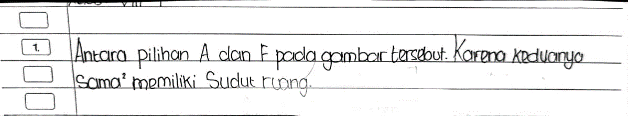 1. Antara pilihan A dan F pada gambar tersebut. Karena keduanya
sama² memiliki Sudut ruang.